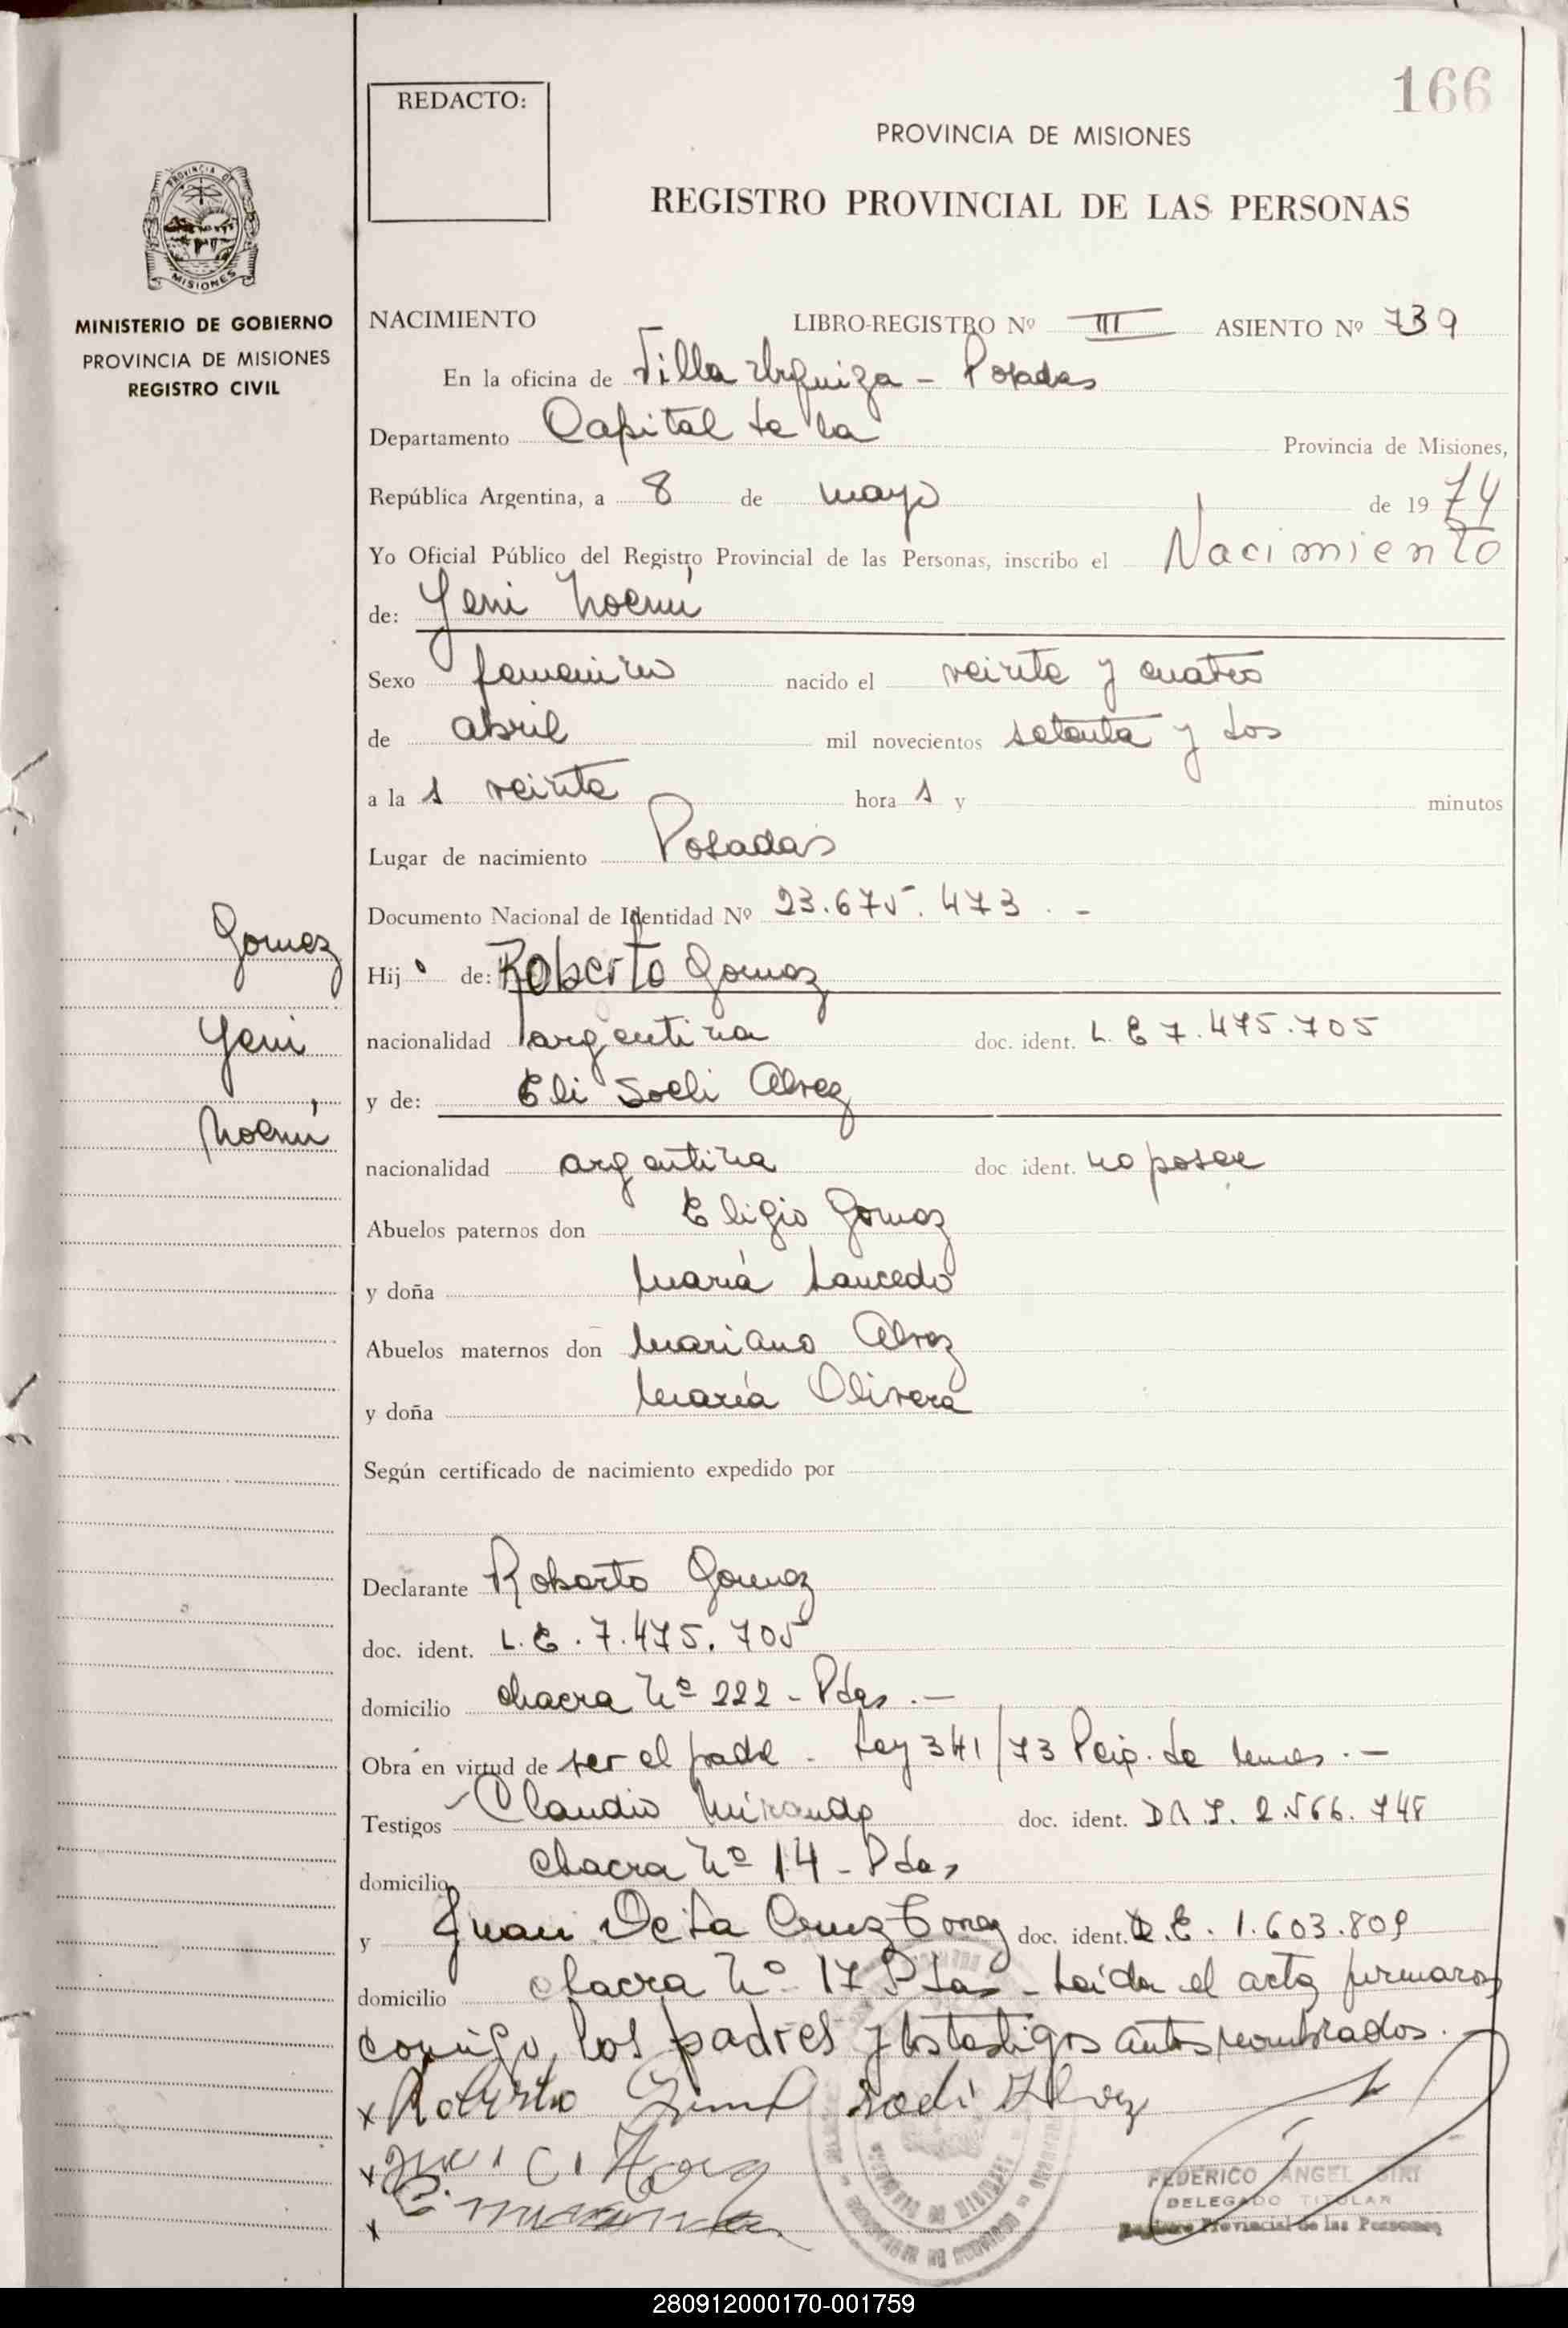 166
REDACTO:
PROVINCIA DE MISIONES
REGISTRO PROVINCIAL DE LAS PERSONAS
PROVINCIA DE
MISIONES
MINISTERIO DE GOBIERNO
PROVINCIA DE MISIONES
REGISTRO CIVIL
NACIMIENTO LIBRO-REGISTRO Nº III ASIENTO Nº 739
En la oficina de Villa Urquiza - Posadas
Departamento Capital de la Provincia de Misiones,
República Argentina, a 8 de mayo de 1974
Yo Oficial Público del Registro Provincial de las Personas, inscribo el Nacimiento
de: Yeni Noemí
Sexo femenino nacido el veinte y cuatro
de abril mil novecientos setenta y dos
a la s veinte hora s y minutos
Lugar de nacimiento Posadas
Documento Nacional de Identidad Nº 23.675.473.-
Gomez
Yeni
Noemí
Hij a de: Roberto Gomez
nacionalidad argentina doc. ident. L.E 7.475.705
y de: Eli Soeli Alvez
nacionalidad argentina doc ident. no posee
Abuelos paternos don Eligio Gomez
y doña María Saucedo
Abuelos maternos don Mariano Alvez
y doña María Olivera
Según certificado de nacimiento expedido por
Declarante Roberto Gomez
doc. ident. L.E.7.475.705
domicilio chacra Nº 222 - Pdas.-
Obra en virtud de ser el padre - Ley 341/73
Testigos Claudio Miranda doc. ident. D.N.I. 2.566.748
domicilio Chacra Nº 14 - Pdas
y Juan De La Cruz doc. ident. L.E. 1.603.809
domicilio chacra Nº 17 Pdas - Leída el acta firmaron
conmigo, los padres y los testigos antes nombrados.
x Roberto Gomez
x
x C. Miranda
FEDERICO ANGEL SIRI
DELEGADO TITULAR
Registro Provincial de las Personas
280912000170-001759